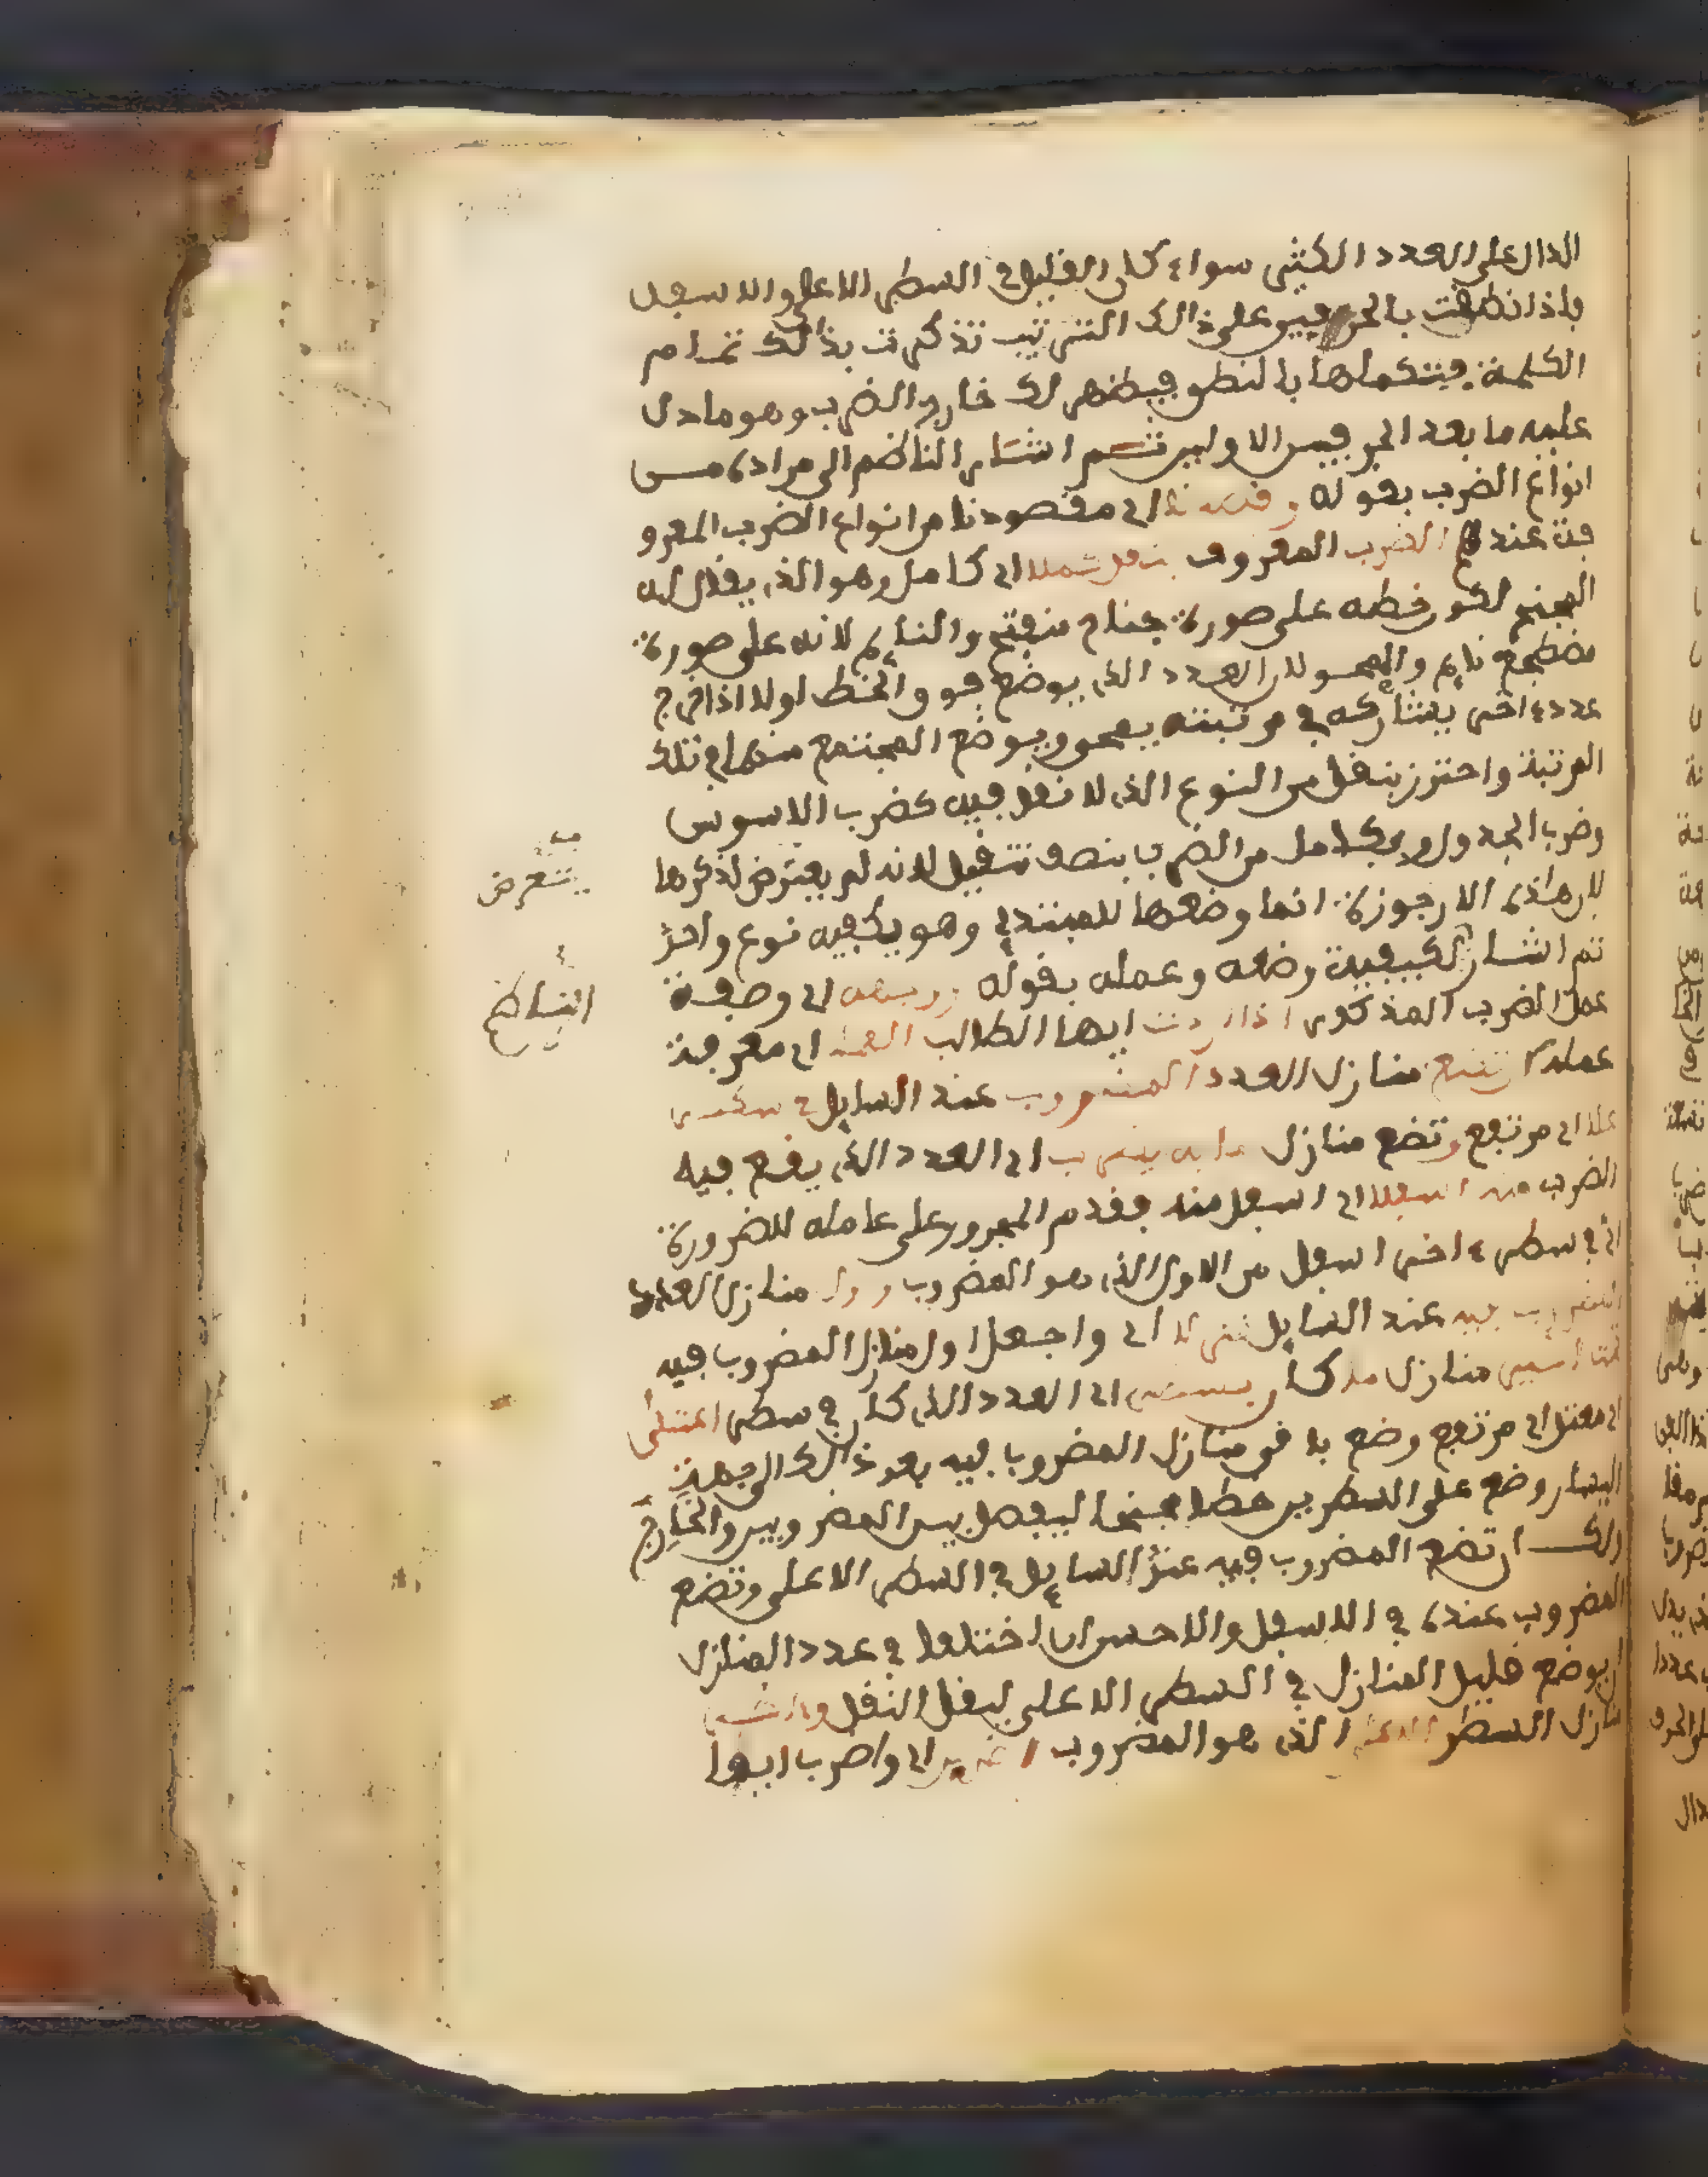 الدال على العدد الكثير سواء كان القليل في السطر الاعلى والاسفل
فاذا نطقت بالحرفين على ذالك الترتيب تذكرت بذالك تمام
الكلمة فتكملها بالنطق فيظهر لك خارج الضرب وهو ما دل
عليه ما بعد الحرفين الاولين ثم اشار الناظم الى مراده من
انواع الضرب بقوله وقصدنا اي مقصودنا من انواع الضرب المعرو
فة عندهم الضرب المعروف بنقل شملا اي كامل وهو الذي يقال له
المجنح لكون خطه على صورة جناح منفتح والنايم لانه على صورة
مضطجع نايم والممحو لان العدد الذي يوضع فوق الخط اولا اذا خرج
عدد ءاخر يشاركه في مرتبته يمحو ويوضع المجتمع منهما في تلك
المرتبة واحترز بنقل من النوع الذي لا نقل فيه كضرب الاسوس
وضرب الجدول وبكامل من الضرب بنصف تنقيل لانه لم يعترض لذكرها
لان هاذه الارجوزة انما وضعها للمبتدي وهو يكفيه نوع واحد
ثم اشار لكيفية وضعه وعمله بقوله ورسمه اي وصفة
عمل الضرب المذكور اذا اردت ايها الطالب العمل اي معرفة
عمله ان تضع منازل العدد المضروب عند السايل في سطر
علا اي مرتفع وتضع منازل ما به يضرب اي العدد الذي يقع فيه
الضرب منه اسفلا اي اسفل منه فقدم المجرور على عامله للضرورة
اي في سطر ءاخر اسفل من الاول الذي هو المضروب واول منازل العدد
المضروب فيه عند السايل اي واجعل اول منازل المضروب فيه
تحت اخير منازل ما كان بسطر اي العدد الذي كان في سطر اعتلى
اي معتل اي مرتفع وضع باقي منازل المضروب فيه بعد ذالك الى جهة
اليسار وضع على السطرين خطا مجنحا ليفصل بين المضروبين والخارج
ولك ان تضع المضروب فيه عند السايل في السطر الاعلى وتضع
المضروب عنده في الاسفل والاحسن ان اختلفا في عدد المنازل
ان يوضع قليل المنازل في السطر الاعلى ليقل النقل
منازل السطر الاعلى الذي هو المضروب اي واضرب ايها
يتعرض
الناظم